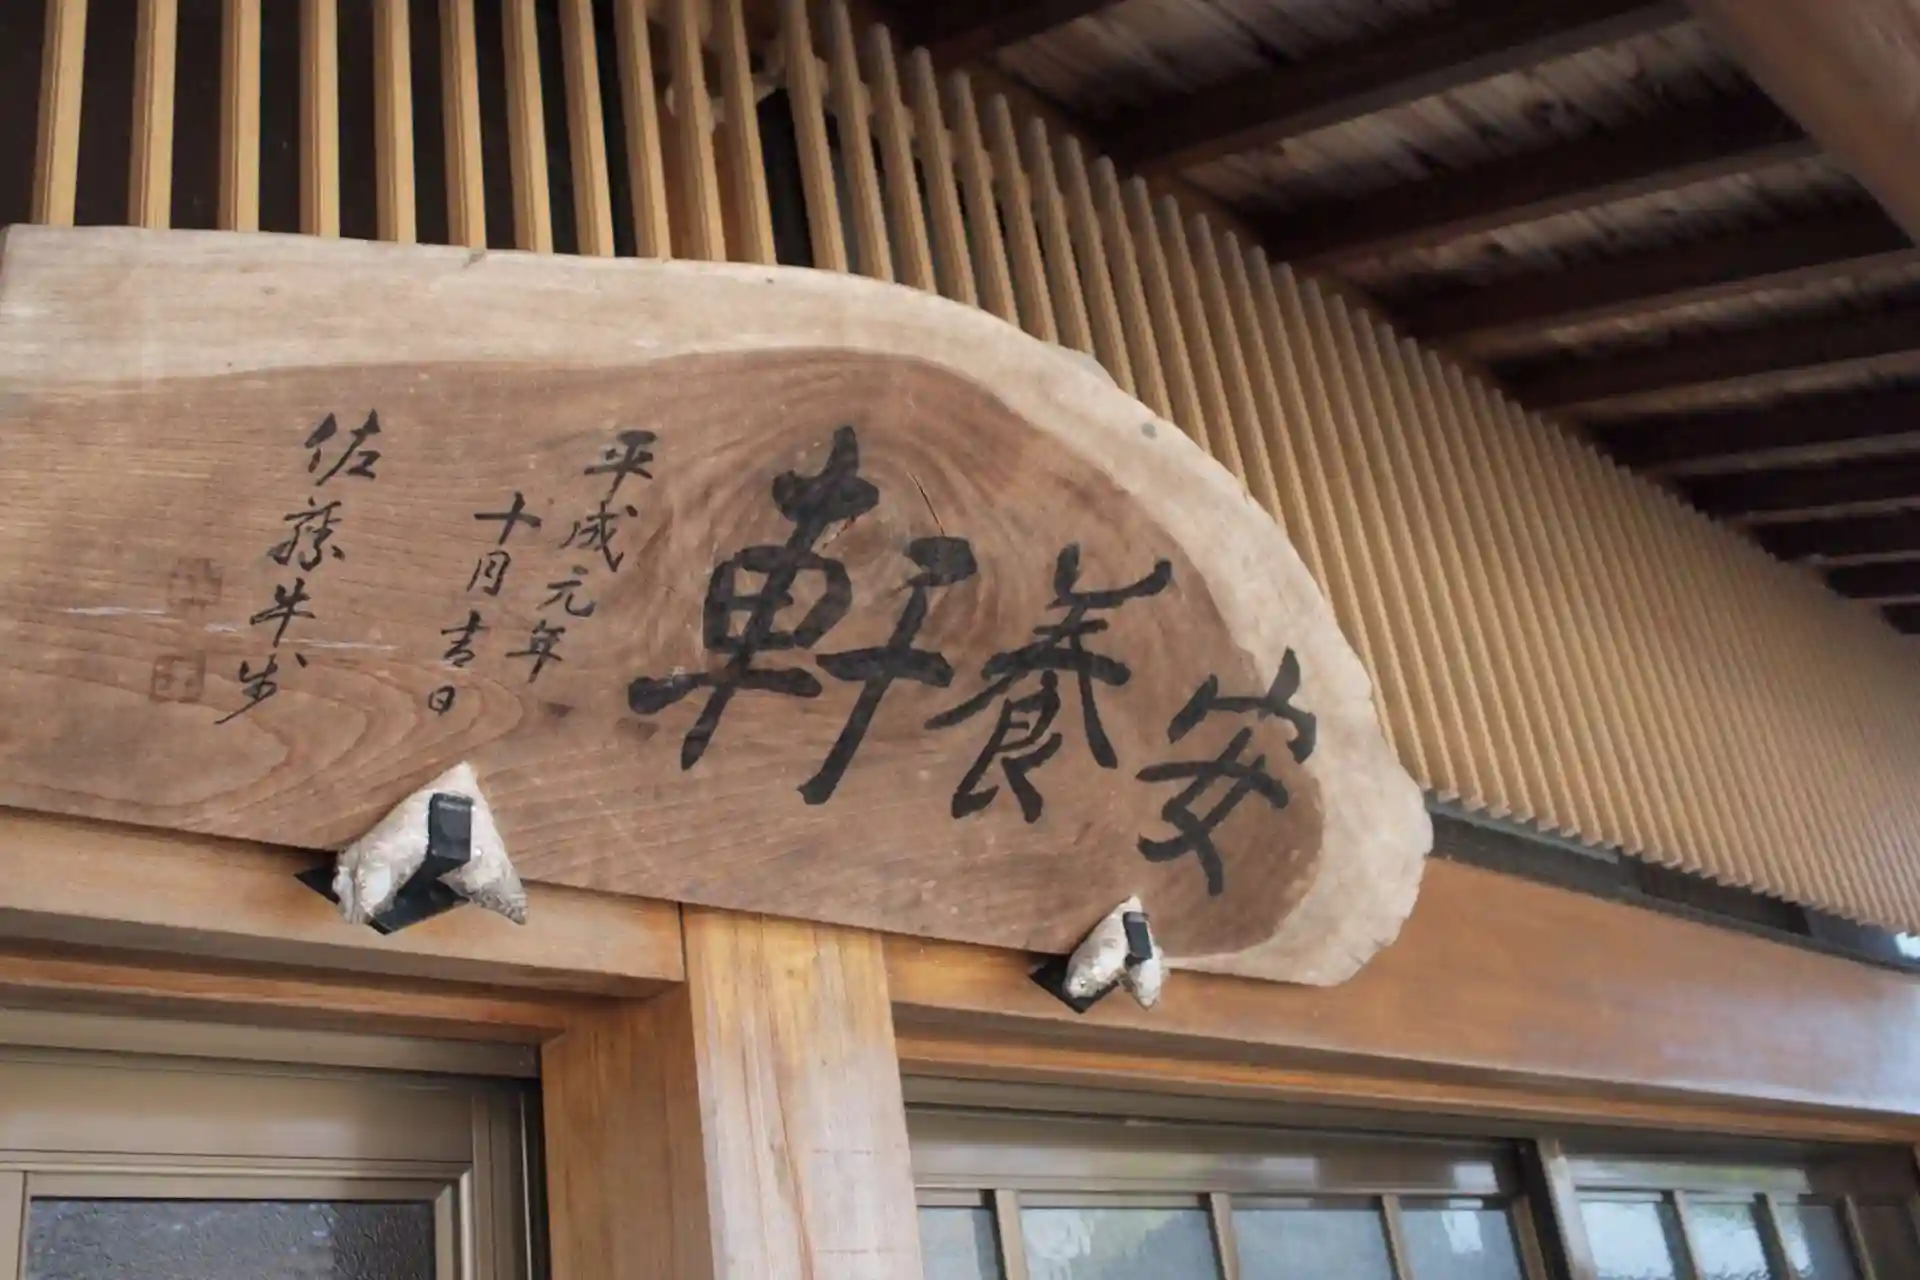 安養軒
平成元年
十月吉日
佐藤牛歩